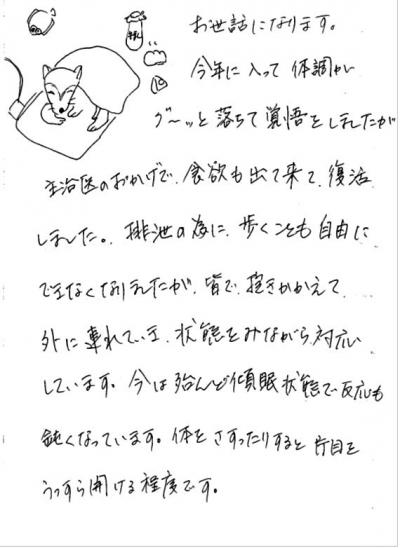 お世話になります。
今年に入って体調が
グ〜ッと落ちて覚悟をしましたが
主治医のおかげで、食欲も出て来て、復活
しました。排泄の為に、歩くことも自由に
できなくなりましたが、皆で、抱きかかえて
外に連れていき、状態をみながら、対応
しています。今は殆んど傾眠状態で反応も
鈍くなっています。体をさすったりすると片目を
うっすら開ける程度です。